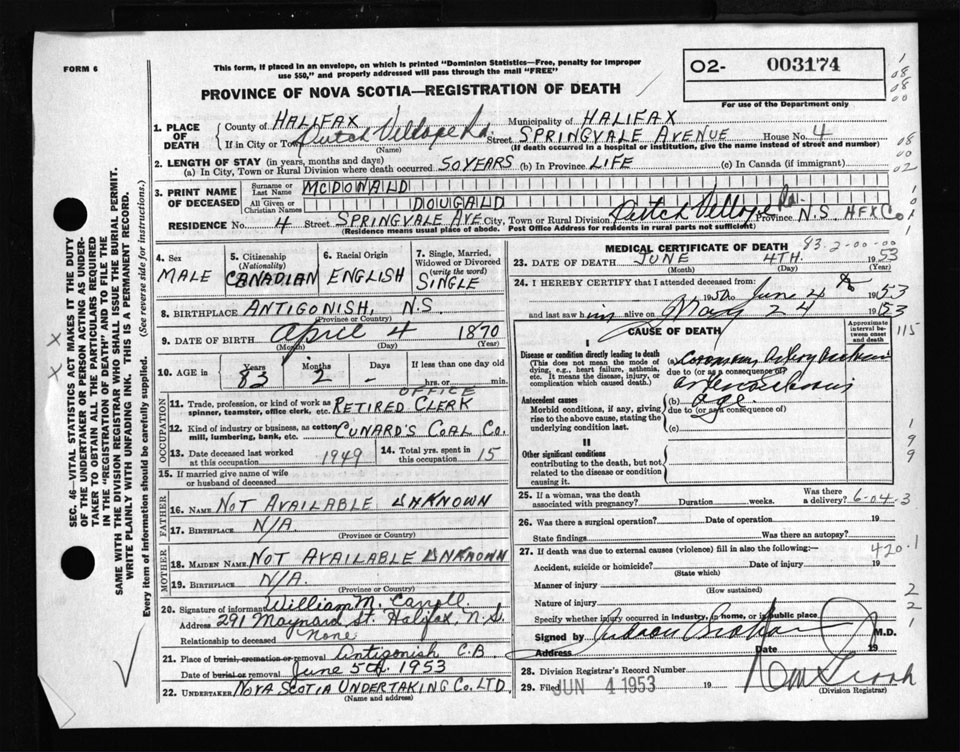 FORM 6
This form, if placed in an envelope, on which is printed "Dominion Statistics—Free, penalty for improper
use $50," and properly addressed will pass through the mail "FREE"
PROVINCE OF NOVA SCOTIA—REGISTRATION OF DEATH
02- 003174
For use of the Department only
1. PLACE OF DEATH
County of HALIFAX Municipality of HALIFAX
If in City or Town Dutch Village Rd. Street SPRINGVALE AVENUE House No. 4
(Name) (If death occurred in a hospital or institution, give the name instead of street and number)
2. LENGTH OF STAY (in years, months and days)
(a) In City, Town or Rural Division where death occurred 50 YEARS (b) In Province LIFE (c) In Canada (if immigrant)
3. PRINT NAME OF DECEASED
Surname or Last Name MCDONALD
All Given or Christian Names DOUGALD
RESIDENCE No. 4 Street SPRINGVALE AVE City, Town or Rural Division Dutch Village Rd. Province N.S. HFX Co.
(Residence means usual place of abode. Post Office Address for residents in rural parts not sufficient)
4. Sex MALE
5. Citizenship (Nationality) CANADIAN
6. Racial Origin ENGLISH
7. Single, Married, Widowed or Divorced (write the word) SINGLE
8. BIRTHPLACE ANTIGONISH, N.S.
(Province or Country)
9. DATE OF BIRTH April 4 1870
(Month) (Day) (Year)
10. AGE in Years 83 Months 2 Days - If less than one day hrs. or min.
OCCUPATION
11. Trade, profession, or kind of work as spinner, teamster, office clerk, etc. RETIRED OFFICE CLERK
12. Kind of industry or business, as cotton mill, lumbering, bank, etc. CUNARD'S COAL CO.
13. Date deceased last worked at this occupation 1949
14. Total yrs. spent in this occupation 15
15. If married give name of wife or husband of deceased
FATHER
16. NAME NOT AVAILABLE UNKNOWN
17. BIRTHPLACE N/A.
(Province or Country)
MOTHER
18. MAIDEN NAME NOT AVAILABLE UNKNOWN
19. BIRTHPLACE N/A.
(Province or Country)
20. Signature of informant William M. Carroll
Address 291 Maynard St. Halifax, N.S.
Relationship to deceased None
21. Place of burial, cremation or removal Antigonish C.B
Date of burial or removal June 5th, 1953
22. UNDERTAKER NOVA SCOTIA UNDERTAKING CO. LTD.
(Name and address)
MEDICAL CERTIFICATE OF DEATH 83-2-00-00
23. DATE OF DEATH JUNE 4TH. 1953
(Month) (Day) (Year)
24. I HEREBY CERTIFY that I attended deceased from:
1950 to June 4 1953
and last saw him alive on May 24 1953
CAUSE OF DEATH
Approximate interval between onset and death
115
I
Disease or condition directly leading to death
(This does not mean the mode of dying, e.g., heart failure, asthenia, etc. It means the disease, injury, or complication which caused death.)
(a) Coronary Artery
due to (or as a consequence of)
Antecedent causes
Morbid conditions, if any, giving rise to the above cause, stating the underlying condition last.
(b) age
due to (or as a consequence of)
(c)
II
Other significant conditions
contributing to the death, but not related to the disease or condition causing it.
25. If a woman, was the death associated with pregnancy? Duration weeks. Was there a delivery? 6-04-3
26. Was there a surgical operation? Date of operation 19
State findings Was there an autopsy?
27. If death was due to external causes (violence) fill in also the following:— 420.1
Accident, suicide or homicide? Date of injury 19
(State which)
Manner of injury
(How sustained)
Nature of injury
Specify whether injury occurred in industry, in home, or in public place
Signed by M.D.
Address Date 19
28. Division Registrar's Record Number
29. Filed JUN 4 1953 19
(Division Registrar)
SEC. 46—VITAL STATISTICS ACT MAKES IT THE DUTY
OF THE UNDERTAKER OR PERSON ACTING AS UNDER-
TAKER TO OBTAIN ALL THE PARTICULARS REQUIRED
IN THE "REGISTRATION OF DEATH" AND TO FILE THE
SAME WITH THE DIVISION REGISTRAR WHO SHALL ISSUE THE BURIAL PERMIT.
WRITE PLAINLY WITH UNFADING INK. THIS IS A PERMANENT RECORD.
Every item of information should be carefully supplied. (See reverse side for instructions.)